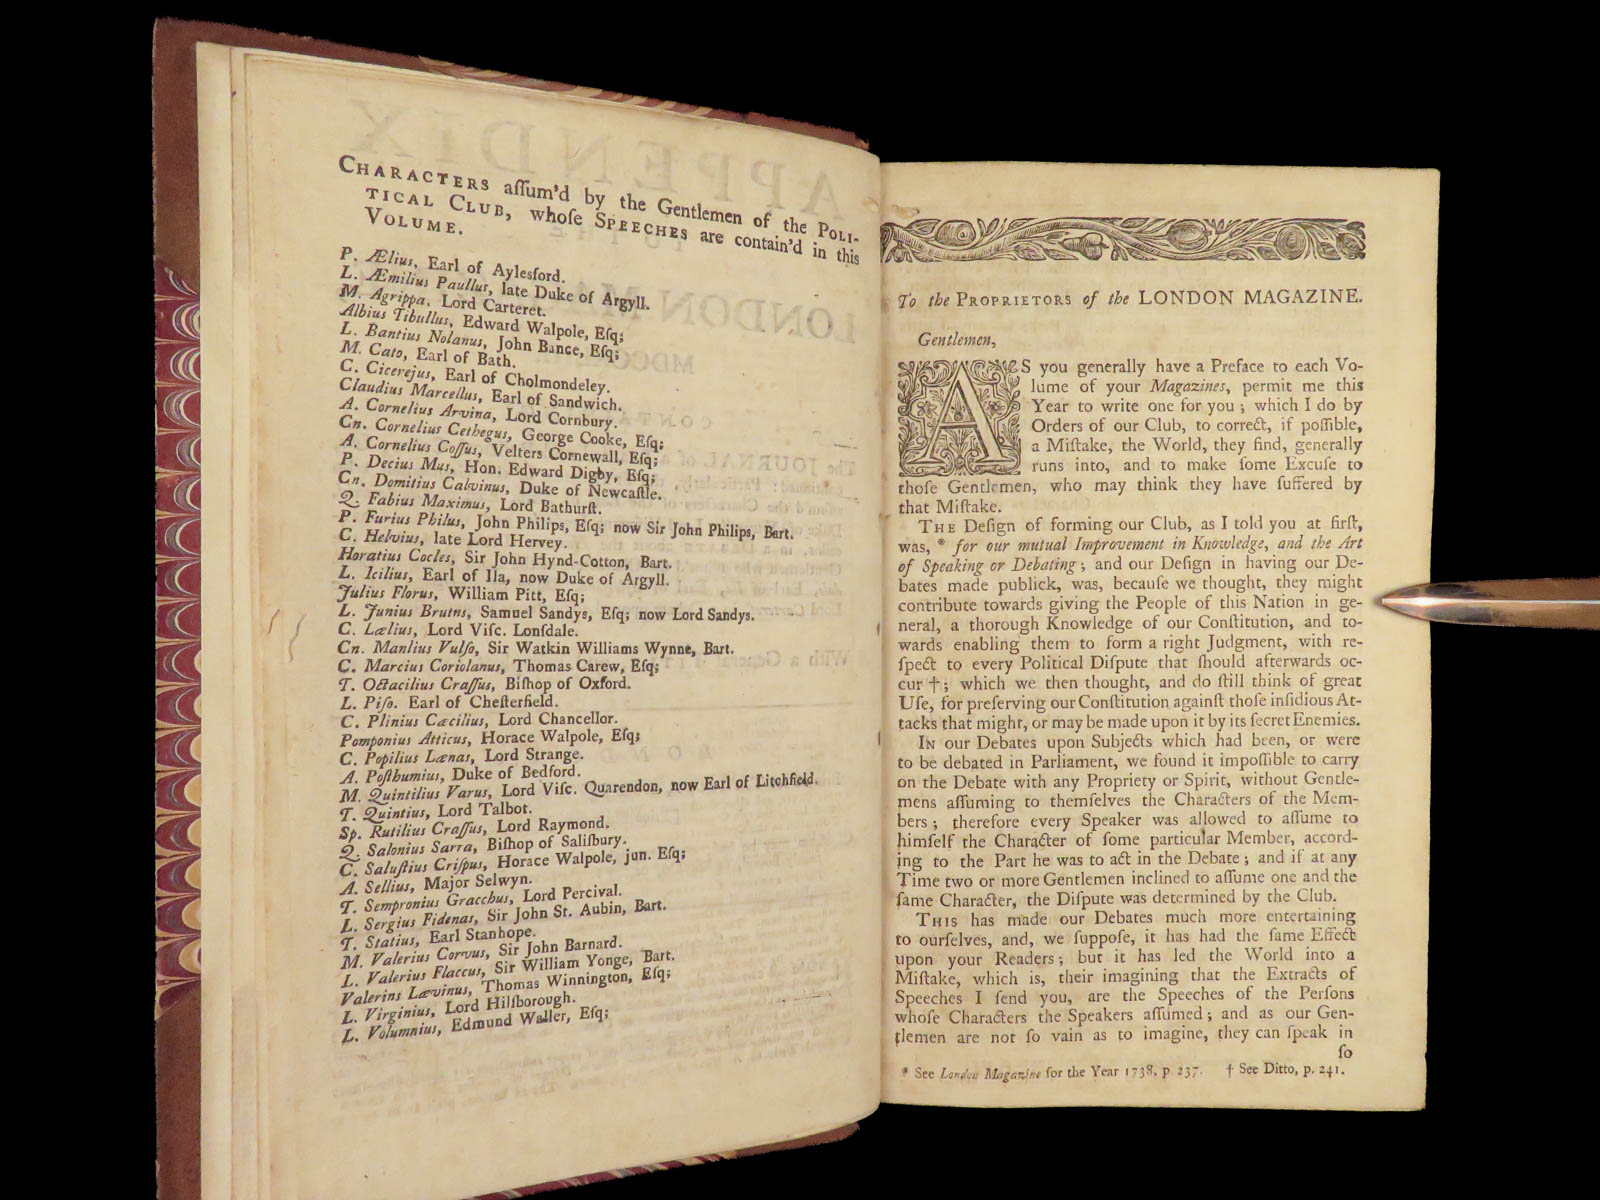 CHARACTERS aſſum'd by the Gentlemen of the POLI-
TICAL CLUB, whoſe SPEECHES are contain'd in this
VOLUME.
P. Ælius, Earl of Aylesford.
L. Æmilius Paullus, late Duke of Argyll.
M. Agrippa, Lord Carteret.
Albius Tibullus, Edward Walpole, Eſq;
L. Bantius Nolanus, John Bance, Eſq;
M. Cato, Earl of Bath.
C. Cicerejus, Earl of Cholmondeley.
Claudius Marcellus, Earl of Sandwich.
A. Cornelius Arvina, Lord Cornbury.
Cn. Cornelius Cethegus, George Cooke, Eſq;
A. Cornelius Coſſus, Velters Cornewall, Eſq;
P. Decius Mus, Hon. Edward Digby, Eſq;
Cn. Domitius Calvinus, Duke of Newcaſtle.
Q. Fabius Maximus, Lord Bathurſt.
P. Furius Philus, John Philips, Eſq; now Sir John Philips, Bart.
C. Helvius, late Lord Hervey.
Horatius Cocles, Sir John Hynd-Cotton, Bart.
L. Icilius, Earl of Ila, now Duke of Argyll.
Julius Florus, William Pitt, Eſq;
L. Junius Brutus, Samuel Sandys, Eſq; now Lord Sandys.
C. Lælius, Lord Viſc. Lonſdale.
Cn. Manlius Vulſo, Sir Watkin Williams Wynne, Bart.
C. Marcius Coriolanus, Thomas Carew, Eſq;
T. Octacilius Craſſus, Biſhop of Oxford.
L. Piſo. Earl of Cheſterfield.
C. Plinius Cæcilius, Lord Chancellor.
Pomponius Atticus, Horace Walpole, Eſq;
C. Popilius Lænas, Lord Strange.
A. Poſthumius, Duke of Bedford.
M. Quintilius Varus, Lord Viſc. Quarendon, now Earl of Litchfield.
T. Quintius, Lord Talbot.
Sp. Rutilius Craſſus, Lord Raymond.
Q. Salonius Sarra, Biſhop of Saliſbury.
C. Saluſtius Criſpus, Horace Walpole, jun. Eſq;
A. Sellius, Major Selwyn.
T. Sempronius Gracchus, Lord Percival.
L. Sergius Fidenas, Sir John St. Aubin, Bart.
T. Statius, Earl Stanhope.
M. Valerius Corvus, Sir John Barnard.
L. Valerius Flaccus, Sir William Yonge, Bart.
Valerius Lævinus, Thomas Winnington, Eſq;
L. Virginius, Lord Hilſborough.
L. Volumnius, Edmund Waller, Eſq;
To the PROPRIETORS of the LONDON MAGAZINE.
Gentlemen,
AS you generally have a Preface to each Vo-
lume of your Magazines, permit me this
Year to write one for you; which I do by
Orders of our Club, to correct, if poſſible,
a Miſtake, the World, they find, generally
runs into, and to make ſome Excuſe to
thoſe Gentlemen, who may think they have ſuffered by
that Miſtake.
THE Deſign of forming our Club, as I told you at firſt,
was, * for our mutual Improvement in Knowledge, and the Art
of Speaking or Debating; and our Deſign in having our De-
bates made publick, was, becauſe we thought, they might
contribute towards giving the People of this Nation in ge-
neral, a thorough Knowledge of our Conſtitution, and to-
wards enabling them to form a right Judgment, with re-
ſpect to every Political Diſpute that ſhould afterwards oc-
cur †; which we then thought, and do ſtill think of great
Uſe, for preſerving our Conſtitution againſt thoſe inſidious At-
tacks that might, or may be made upon it by its ſecret Enemies.
IN our Debates upon Subjects which had been, or were
to be debated in Parliament, we found it impoſſible to carry
on the Debate with any Propriety or Spirit, without Gentle-
mens aſſuming to themſelves the Characters of the Mem-
bers; therefore every Speaker was allowed to aſſume to
himſelf the Character of ſome particular Member, accord-
ing to the Part he was to act in the Debate; and if at any
Time two or more Gentlemen inclined to aſſume one and the
ſame Character, the Diſpute was determined by the Club.
THIS has made our Debates much more entertaining
to ourſelves, and, we ſuppoſe, it has had the ſame Effect
upon your Readers; but it has led the World into a
Miſtake, which is, their imagining that the Extracts of
Speeches I ſend you, are the Speeches of the Perſons
whoſe Characters the Speakers aſſumed; and as our Gen-
tlemen are not ſo vain as to imagine, they can ſpeak in
ſo
* See London Magazine for the Year 1738, p 237. † See Ditto, p. 241.